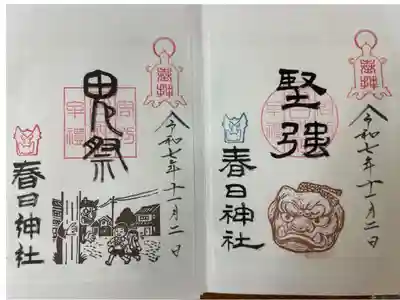 令和七年十一月二日
鬼祭
春日神社
令和七年十一月二日
堅強
春日神社